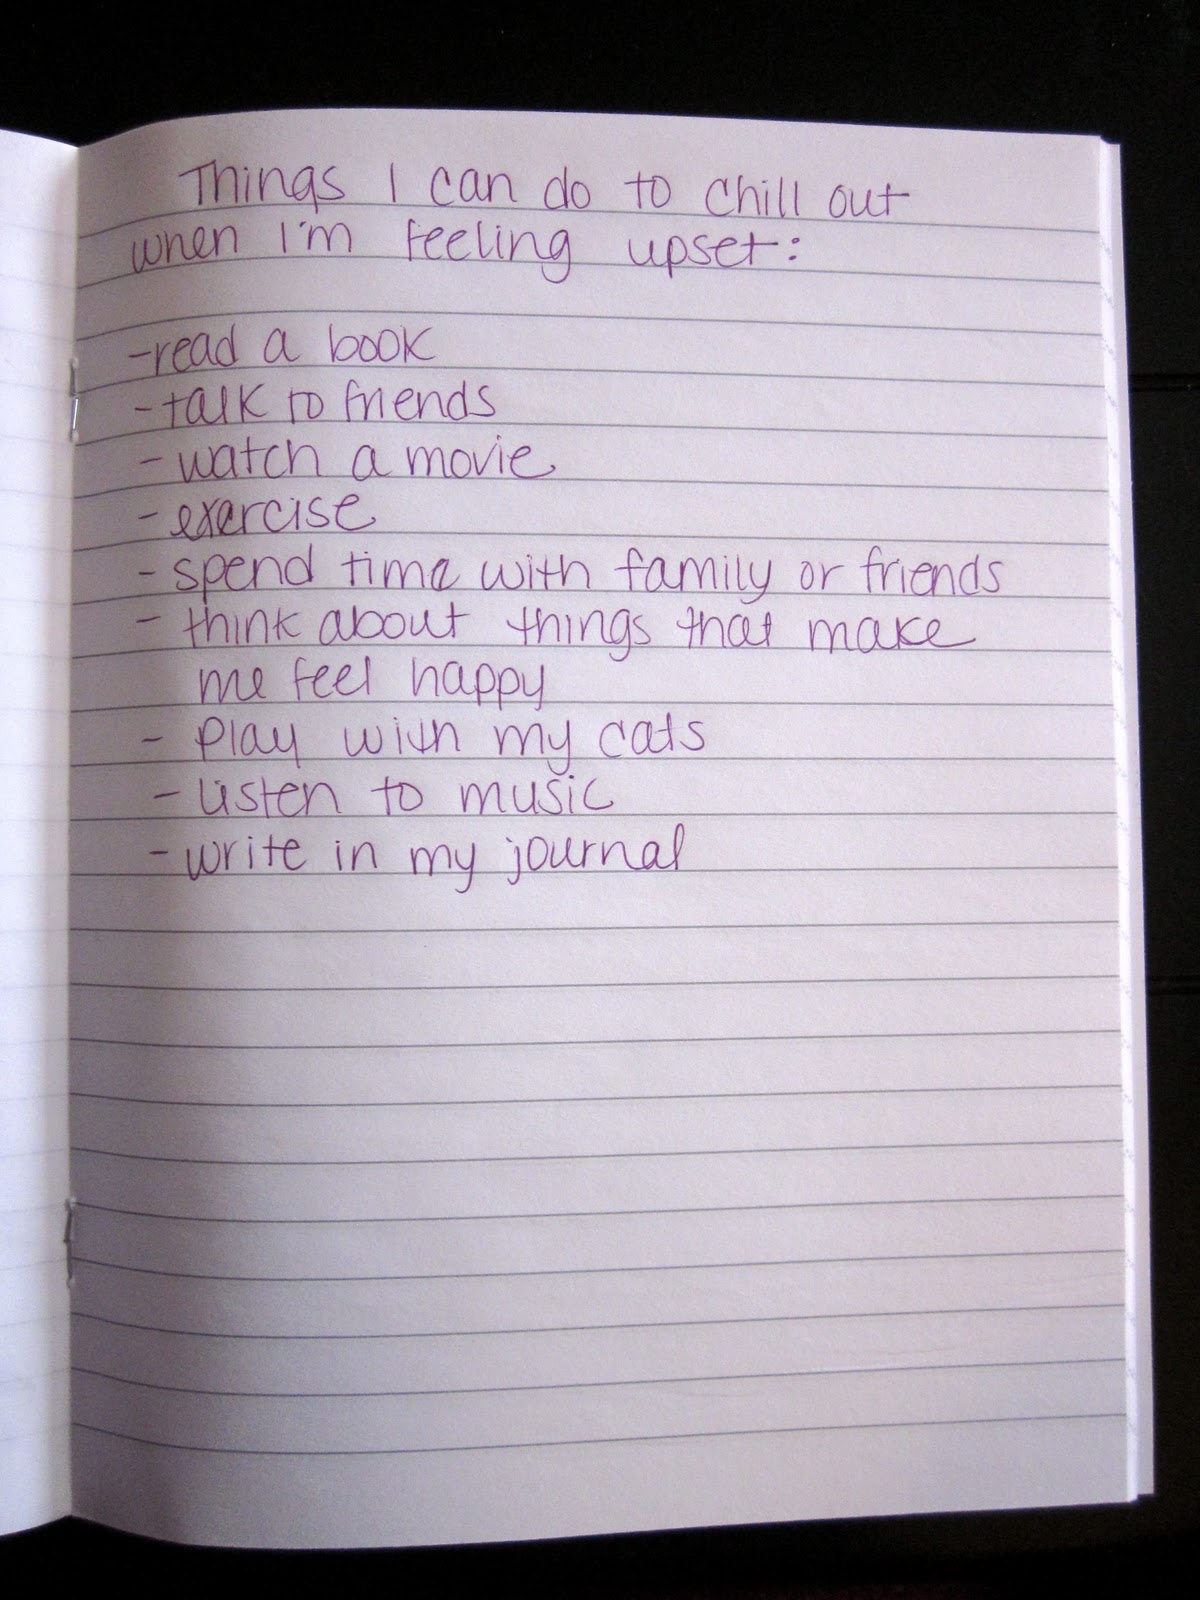 Things I can do to chill out
when I'm feeling upset:
-read a book
-talk to friends
- watch a movie
- exercise
- spend time with family or friends
- think about things that make
me feel happy
- play with my cats
- listen to music
- write in my journal